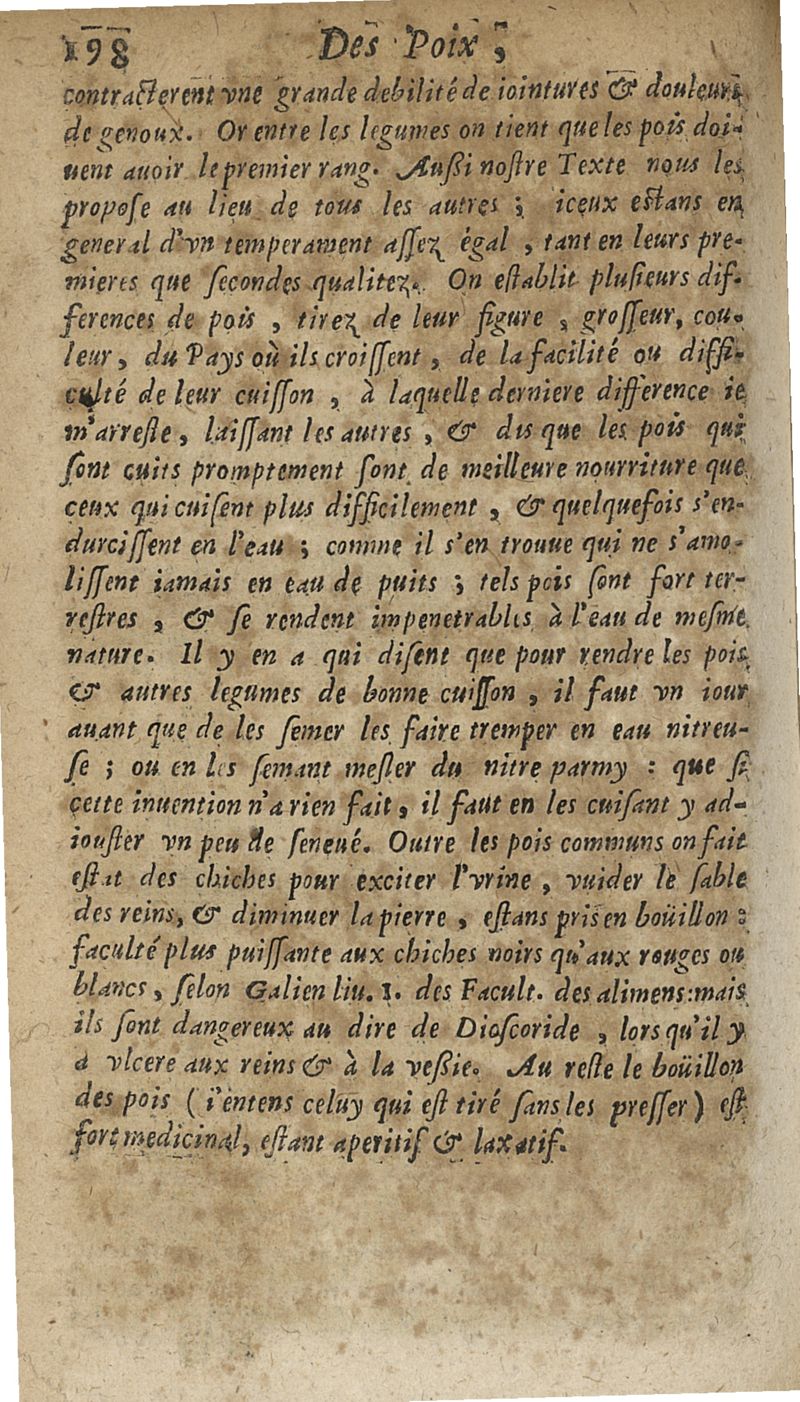 198 Des Poix,
contracterent vne grande debilité de iointures & douleurs
de genoux. Or entre les legumes on tient que les pois doi-
uent auoir le premier rang. Außi noſtre Texte nous les
propoſe au lieu de tous les autres ; iceux eſtans en
general d'vn temperament aſſez égal , tant en leurs pre-
mieres que ſecondes qualitez. On eſtablit pluſieurs dif-
ferences de pois , tirez de leur figure , groſſeur, cou-
leur, du Pays où ils croiſſent , de la facilité ou diffi-
culté de leur cuiſſon , à laquelle derniere difference ie
m'arreſte, laiſſant les autres , & dis que les pois qui
ſont cuits promptement ſont de meilleure nourriture que
ceux qui cuiſent plus difficilement , & quelquefois s'en-
durciſſent en l'eau ; comme il s'en trouue qui ne s'amo-
liſſent iamais en eau de puits ; tels pois ſont fort ter-
reſtres , & ſe rendent impenetrables à l'eau de meſme
nature. Il y en a qui diſent que pour rendre les pois
& autres legumes de bonne cuiſſon , il faut vn iour
auant que de les ſemer les faire tremper en eau nitreu-
ſe ; ou en les ſemant meſler du nitre parmy : que ſi
cette inuention n'a rien fait, il faut en les cuiſant y ad-
iouſter vn peu de ſeneué. Outre les pois communs on fait
eſtat des chiches pour exciter l'vrine , vuider le ſable
des reins, & diminuer la pierre , eſtans pris en boüillon :
faculté plus puiſſante aux chiches noirs qu'aux rouges ou
blancs , ſelon Galien liu. 1. des Facult. des alimens: mais
ils ſont dangereux au dire de Dioſcoride , lors qu'il y
a vlcere aux reins & à la veßie. Au reſte le boüillon
des pois ( i'entens celuy qui eſt tiré ſans les preſſer ) eſt
fort medicinal, eſtant aperitif & laxatif.